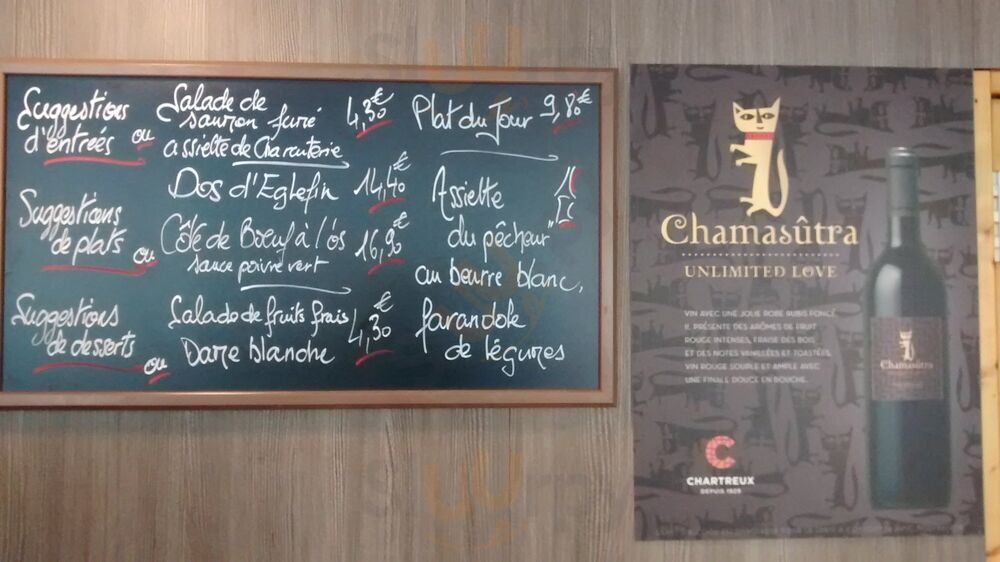 Suggestions
d'entrées ou
Salade de
saumon fumé
assiette de Charcuterie
4,30€
Suggestions
de plats ou
Dos d'Eglefin 14,40€
Côte de Boeuf à l'os
sauce poivre vert
16,90€
Suggestions
de desserts ou
Salade de fruits frais
Dame blanche
4,30€
Plat du Jour 9,80€
Assiette
du pêcheur"
au beurre blanc,
farandole
de légumes
Chamasûtra
UNLIMITED LOVE
VIN AVEC UNE JOLIE ROBE RUBIS FONCÉ.
IL PRÉSENTE DES ARÔMES DE FRUIT
ROUGE INTENSES, FRAISE DES BOIS
ET DES NOTES VANILLÉES ET TOASTÉES.
VIN ROUGE SOUPLE ET AMPLE AVEC
UNE FINALE DOUCE EN BOUCHE.
Chamasûtra
CHARTREUX
DEPUIS 1929